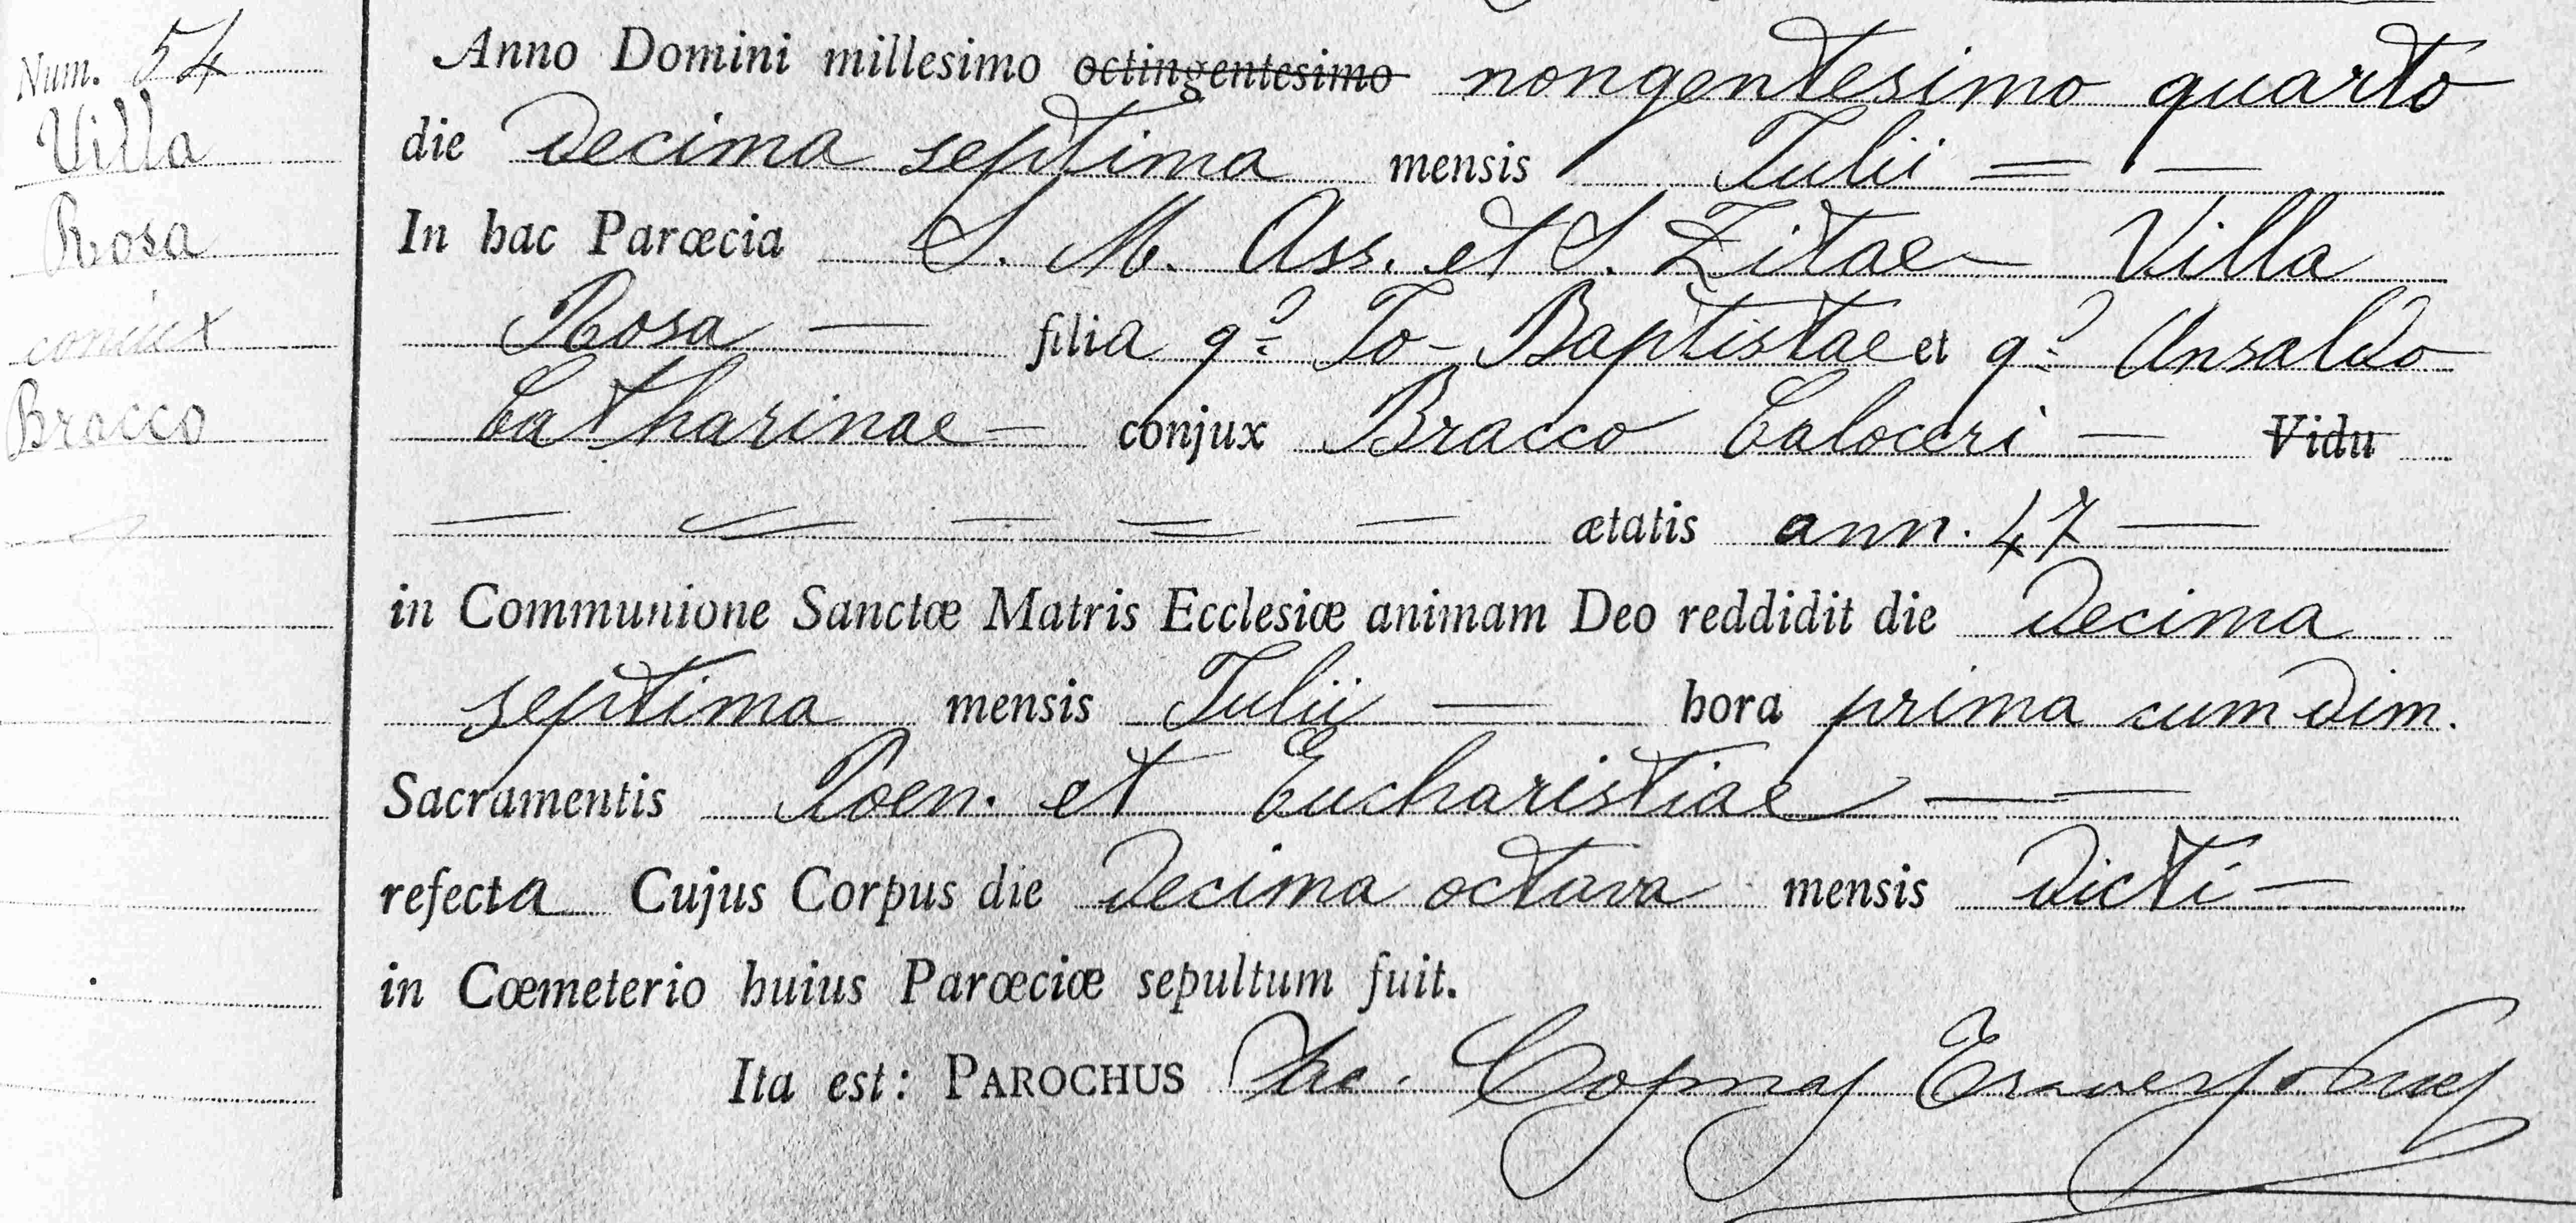 Num. 54
Villa
Rosa
conjux
Bracco
Anno Domini millesimo octingentesimo nongentesimo quarto
die decima septima mensis Julii = —
In hac Parœcia S. M. Ass. et S. Zitae — Villa
Rosa — filia q.m Jo- Baptistae et q.m Ansaldo
Catharinae — conjux Bracco Caloceri — Vidu
— = — = — ætatis ann. 47 —
in Communione Sanctæ Matris Ecclesiæ animam Deo reddidit die decima
septima mensis Julii — hora prima cum dim.
Sacramentis Poen. et Eucharistiae — —
refecta Cujus Corpus die decima octava mensis dicti —
in Cœmeterio huius Parœciæ sepultum fuit.
Ita est: PAROCHUS